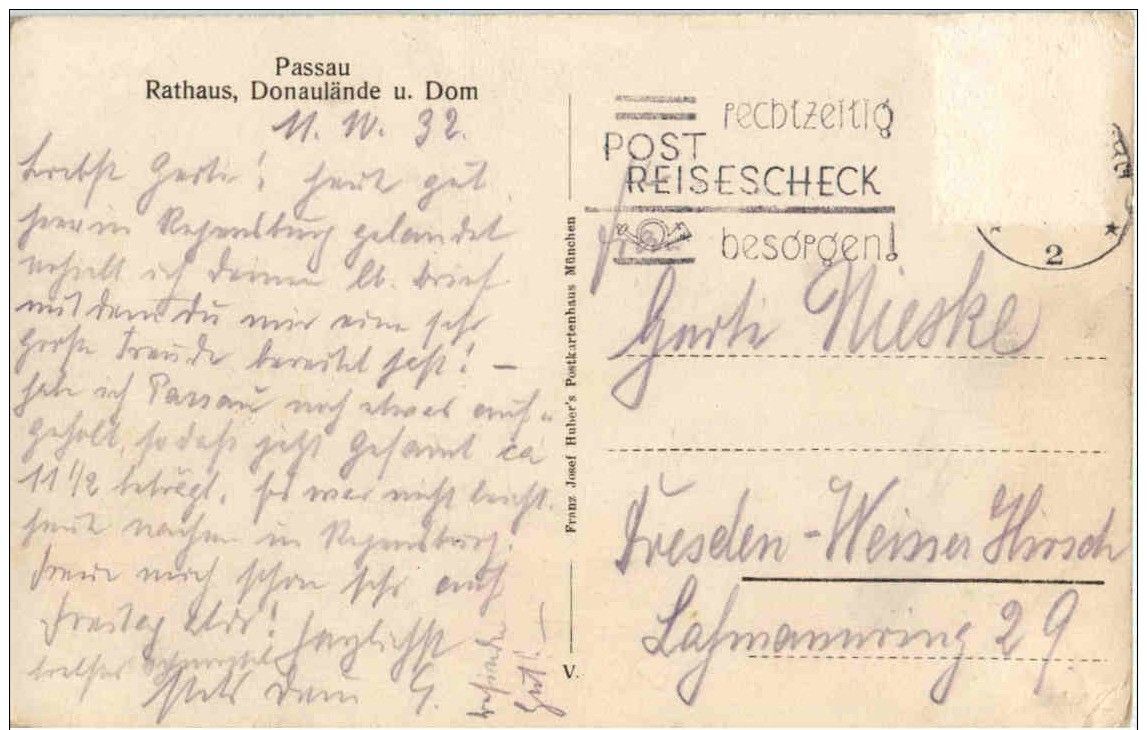 Passau
Rathaus, Donaulände u. Dom
11. IV. 32.
Liebste Gerti! Heut gut
hier in Regensburg gelandet
erhielt ich deinen lb. Brief
mit dem du mir eine sehr
große Freude bereitet hast! —
hab ich Passau noch etwas auf-
geholt, so daß jetzt gesamt ca
11 1/2 beträgt. Es war nicht leicht.
heute nachm in Regensburg.
Freue mich schon sehr auf
Freitag
Herzlichst
stets dein G.
gut! —
rechtzeitig
POST
REISESCHECK
besorgen!
2
Franz Josef Huber's Postkartenhaus München
V.
Gerti Nieske
Dresden-Weisser Hirsch
Lahmannring 29.